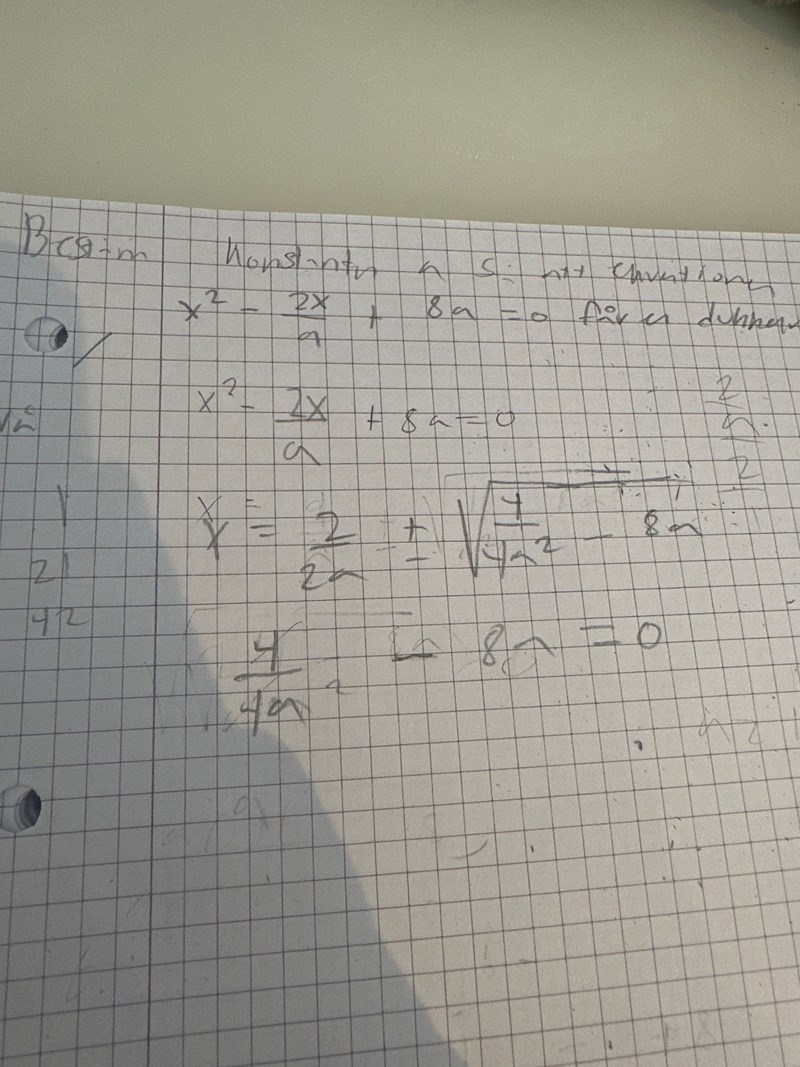 Bestäm Konstanten a så att ekvationen
x² - 2x/a + 8a = 0 får en dubbel
x² - 2x/a + 8a = 0
x = 2/2a ± √(4/4a² - 8a)
4/4a² - 8a = 0
2/a
2
1
21
42